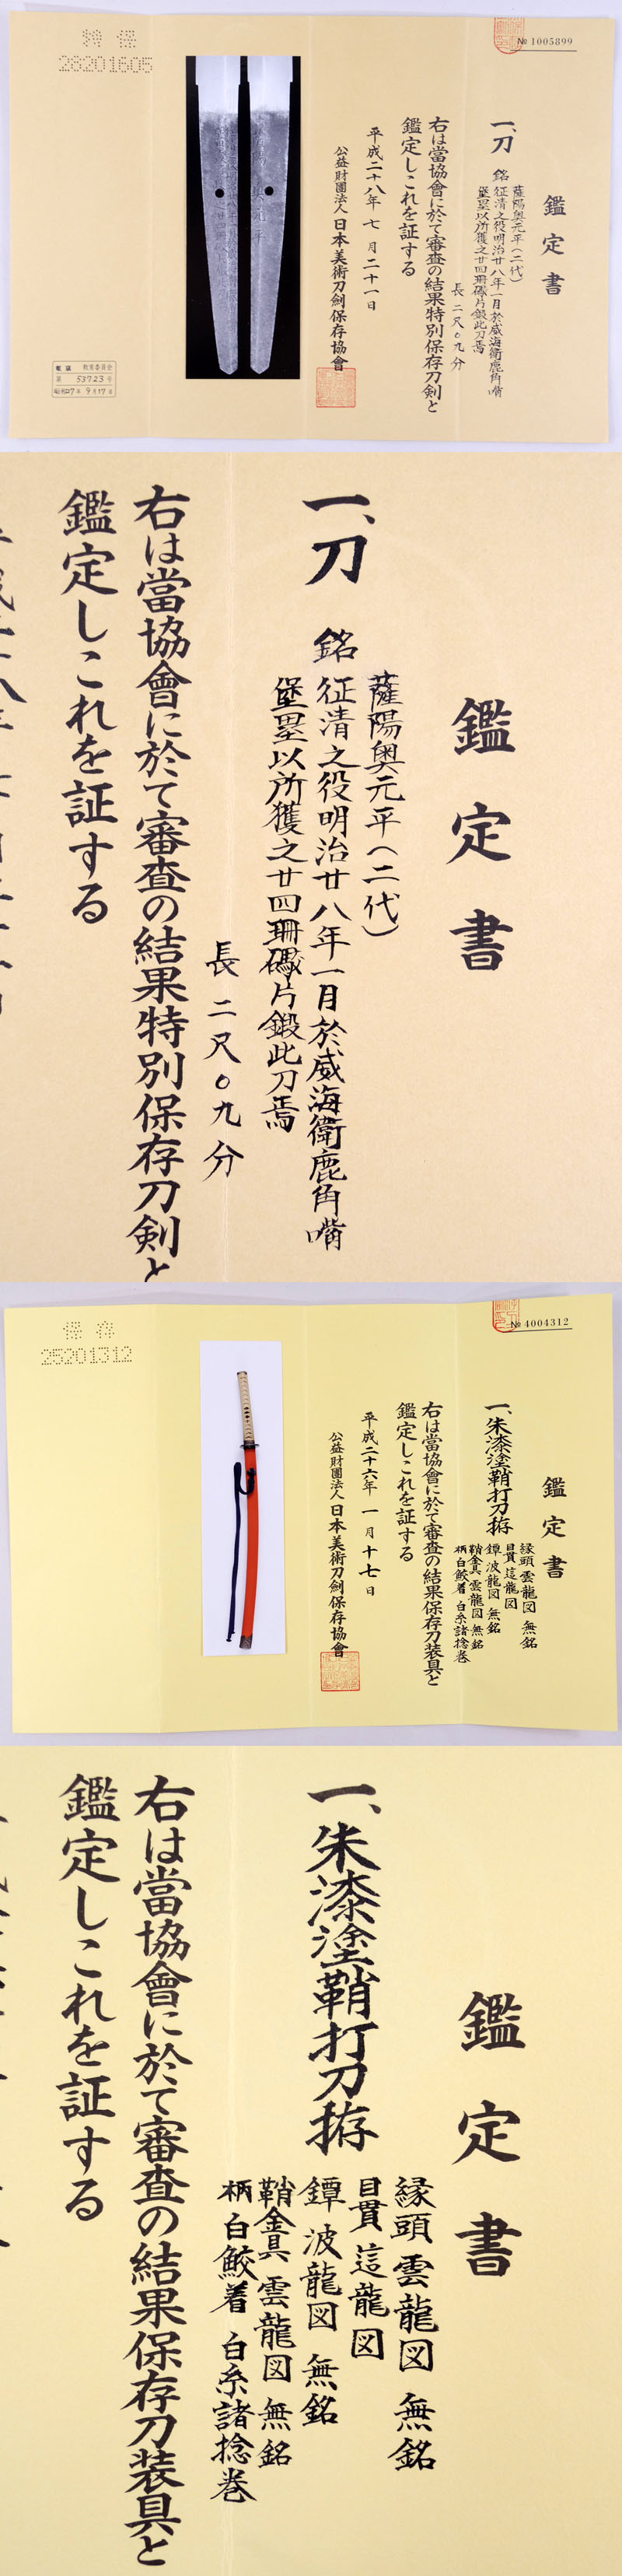 特 保
28201605
№ 1005899
鑑定書
一、刀
銘
薩陽奥元平(二代)
征清之役明治廿八年一月於威海衛鹿角嘴
堡塁以所獲之廿四珊礮片鍛此刀焉
長 二尺〇九分
右は當協會に於て審査の結果特別保存刀剣と
鑑定しこれを証する
平成二十八年 七月二十一日
公益財團法人 日本美術刀劍保存協會
教育委員会
第 53723 号
昭和27年 9月17日
鑑定書
一、刀
銘
薩陽奥元平(二代)
征清之役明治廿八年一月於威海衛鹿角嘴
堡塁以所獲之廿四珊礮片鍛此刀焉
長 二尺〇九分
右は當協會に於て審査の結果特別保存刀剣と
鑑定しこれを証する
保 存
25201312
№ 4004312
鑑定書
一、朱漆塗鞘打刀拵
縁頭 雲龍図 無銘
目貫 這龍図
鐔 波龍図 無銘
鞘金具 雲龍図 無銘
柄 白鮫着 白糸諸捻巻
右は當協會に於て審査の結果保存刀装具と
鑑定しこれを証する
平成二十六年 一月十七日
公益財團法人 日本美術刀劍保存協會
鑑定書
一、朱漆塗鞘打刀拵
縁頭 雲龍図 無銘
目貫 這龍図
鐔 波龍図 無銘
鞘金具 雲龍図 無銘
柄 白鮫着 白糸諸捻巻
右は當協會に於て審査の結果保存刀装具と
鑑定しこれを証する